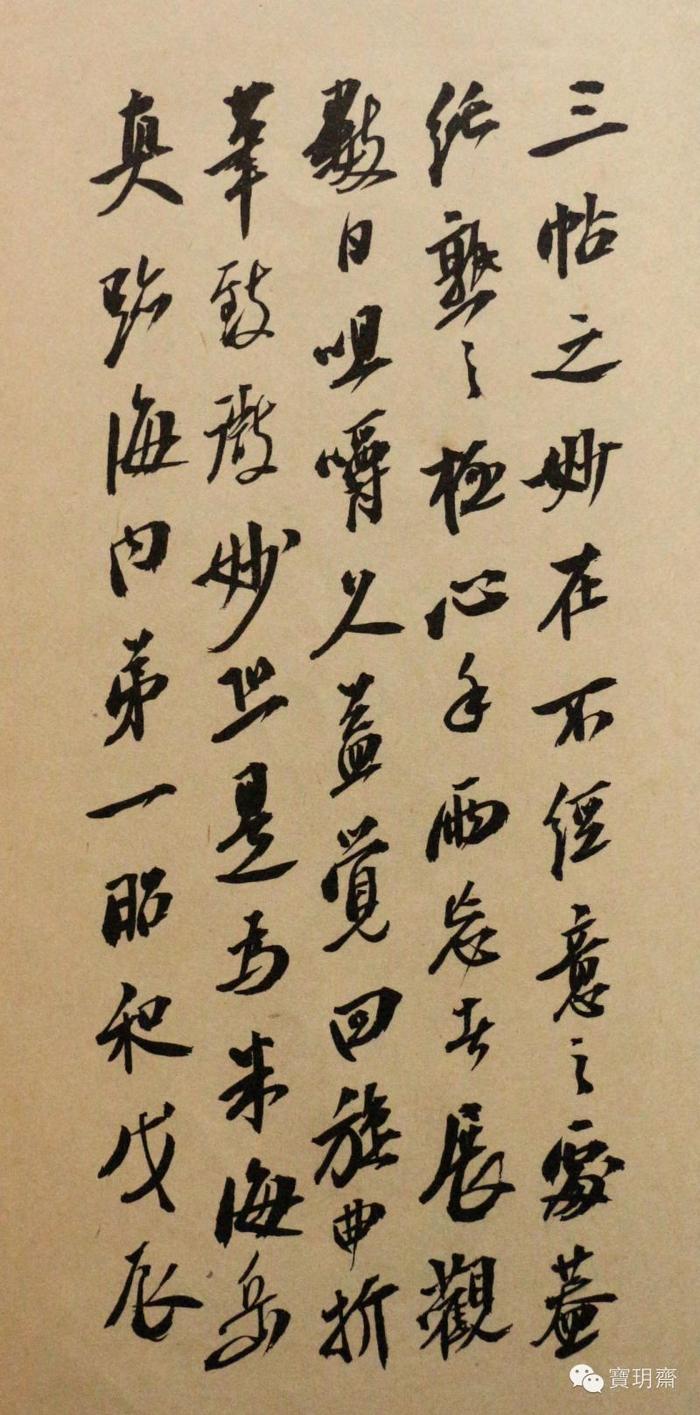 三帖之妙在不經意之處蓋
純熟之極心手兩忘者展觀
數日咀嚼久益覺回旋曲折
筆致殊妙洵是為米海岳
真跡海内第一昭和戊辰
寶玥齋